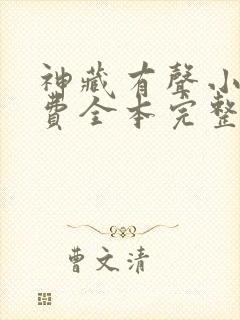 神藏有聲小
費全本完整
曹文清